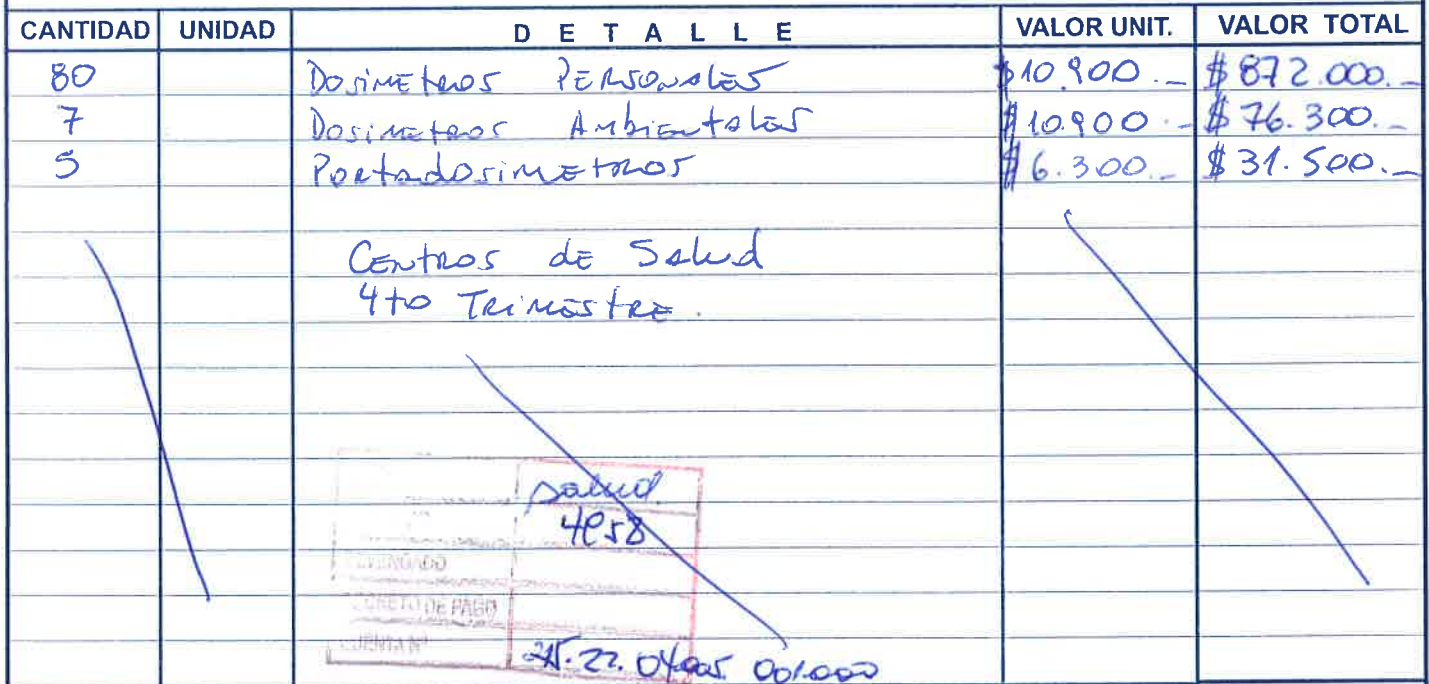 CANTIDAD UNIDAD DETALLE VALOR UNIT. VALOR TOTAL
80 Dosimetros Personales $10.900.- $872.000.-
7 Dosimetros Ambientales $10.900.- $76.300.-
5 Portadosimetros $6.300.- $31.500.-
Centros de Salud
4to Trimestre.
Salud
DEVENGADO
DECRETO DE PAGO
CUENTA Nº